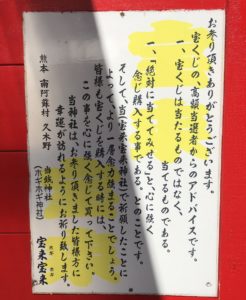 お参り頂きありがとうございます。
宝くじの、高額当選者からのアドバイスです。
一、宝くじは当たるものではなく、
当てるものである。
一、「絶対に当ててみせる」と、心に強く
念じ購入する事である。とのことです。
そして、当「宝来宝来神社」で祈願したことに
よって、より一層念力が強まることでしょう。
皆様も宝くじを購入する時には、
この事を心に強く念じて買って下さい。
当神社は、お参り頂きました皆様方に
幸運が訪れるようにお祈り致します。
熊本 南阿蘇村 久木野
当銭神社
(ホギホギ神社)
宝来宝来